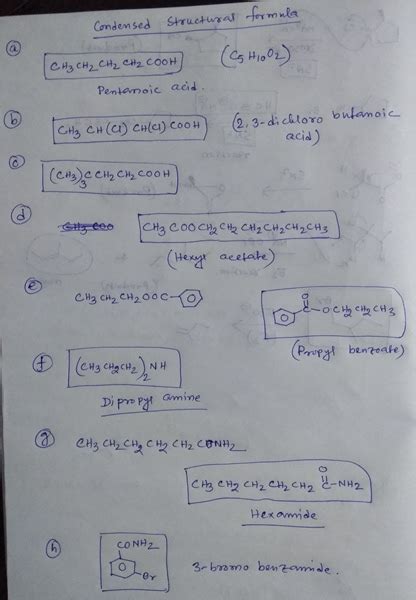 Condensed Structural formula
(a) CH3CH2CH2CH2COOH (C5H10O2)
Pentanoic acid.
(b) CH3 CH(Cl) CH(Cl) COOH (2,3-dichloro butanoic acid)
(c) (CH3)3 C CH2 CH2 COOH
(d) CH3 COO CH3 COO CH2 CH2 CH2 CH2 CH2 CH3
(Hexyl acetate)
(e) CH3 CH2 CH2 OOC- C O -O CH2 CH2 CH3
(Propyl benzoate)
(f) (CH3 CH2 CH2)2 NH
Dipropyl amine
(g) CH3 CH2 CH2 CH2 CH2 CONH2
CH3 CH2 CH2 CH2 CH2 C O -NH2
Hexamide
(h) CONH2 Br 3-bromo benzamide.